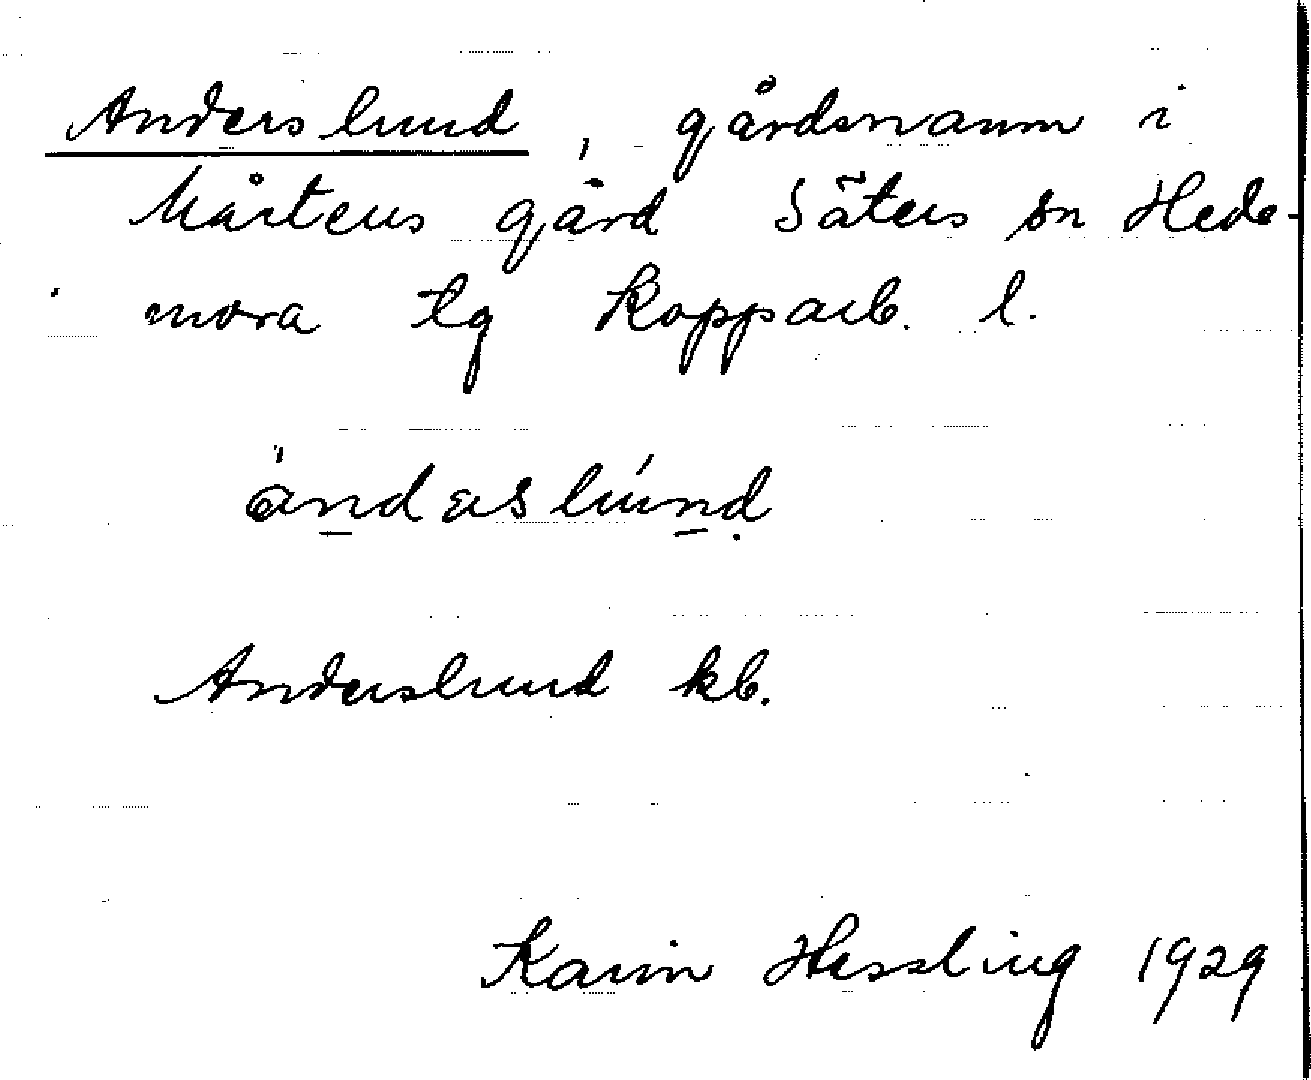 Anderslund, gårdsnamn i
Mårtens gård Säters sn Hede-
mora tg Kopparb. l.
ànderslúnd
Anderslund kb.
Karin Hessling 1929